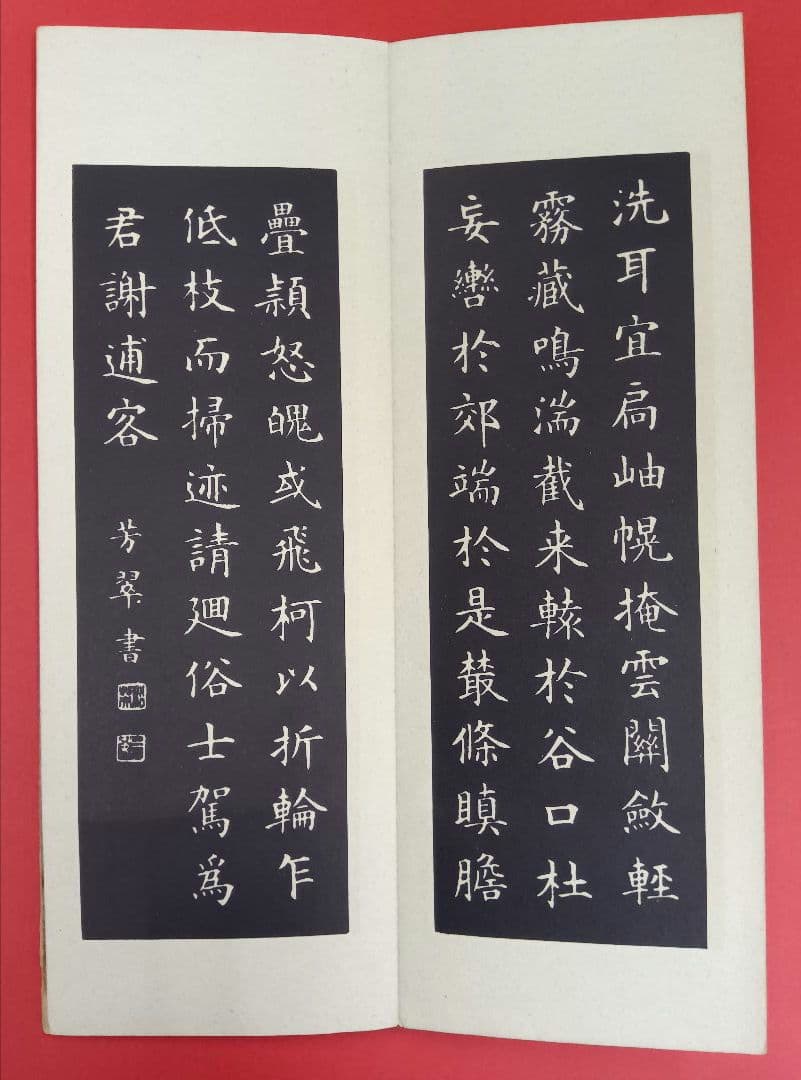 洗耳宜扃岫幌掩雲關斂軽
霧藏鳴湍截来轅於谷口杜
妄轡於郊端於是叢條瞋膽
疊穎怒魄或飛柯以折輪乍
低枝而掃迹請廻俗士駕爲
君謝逋客
芳翠書